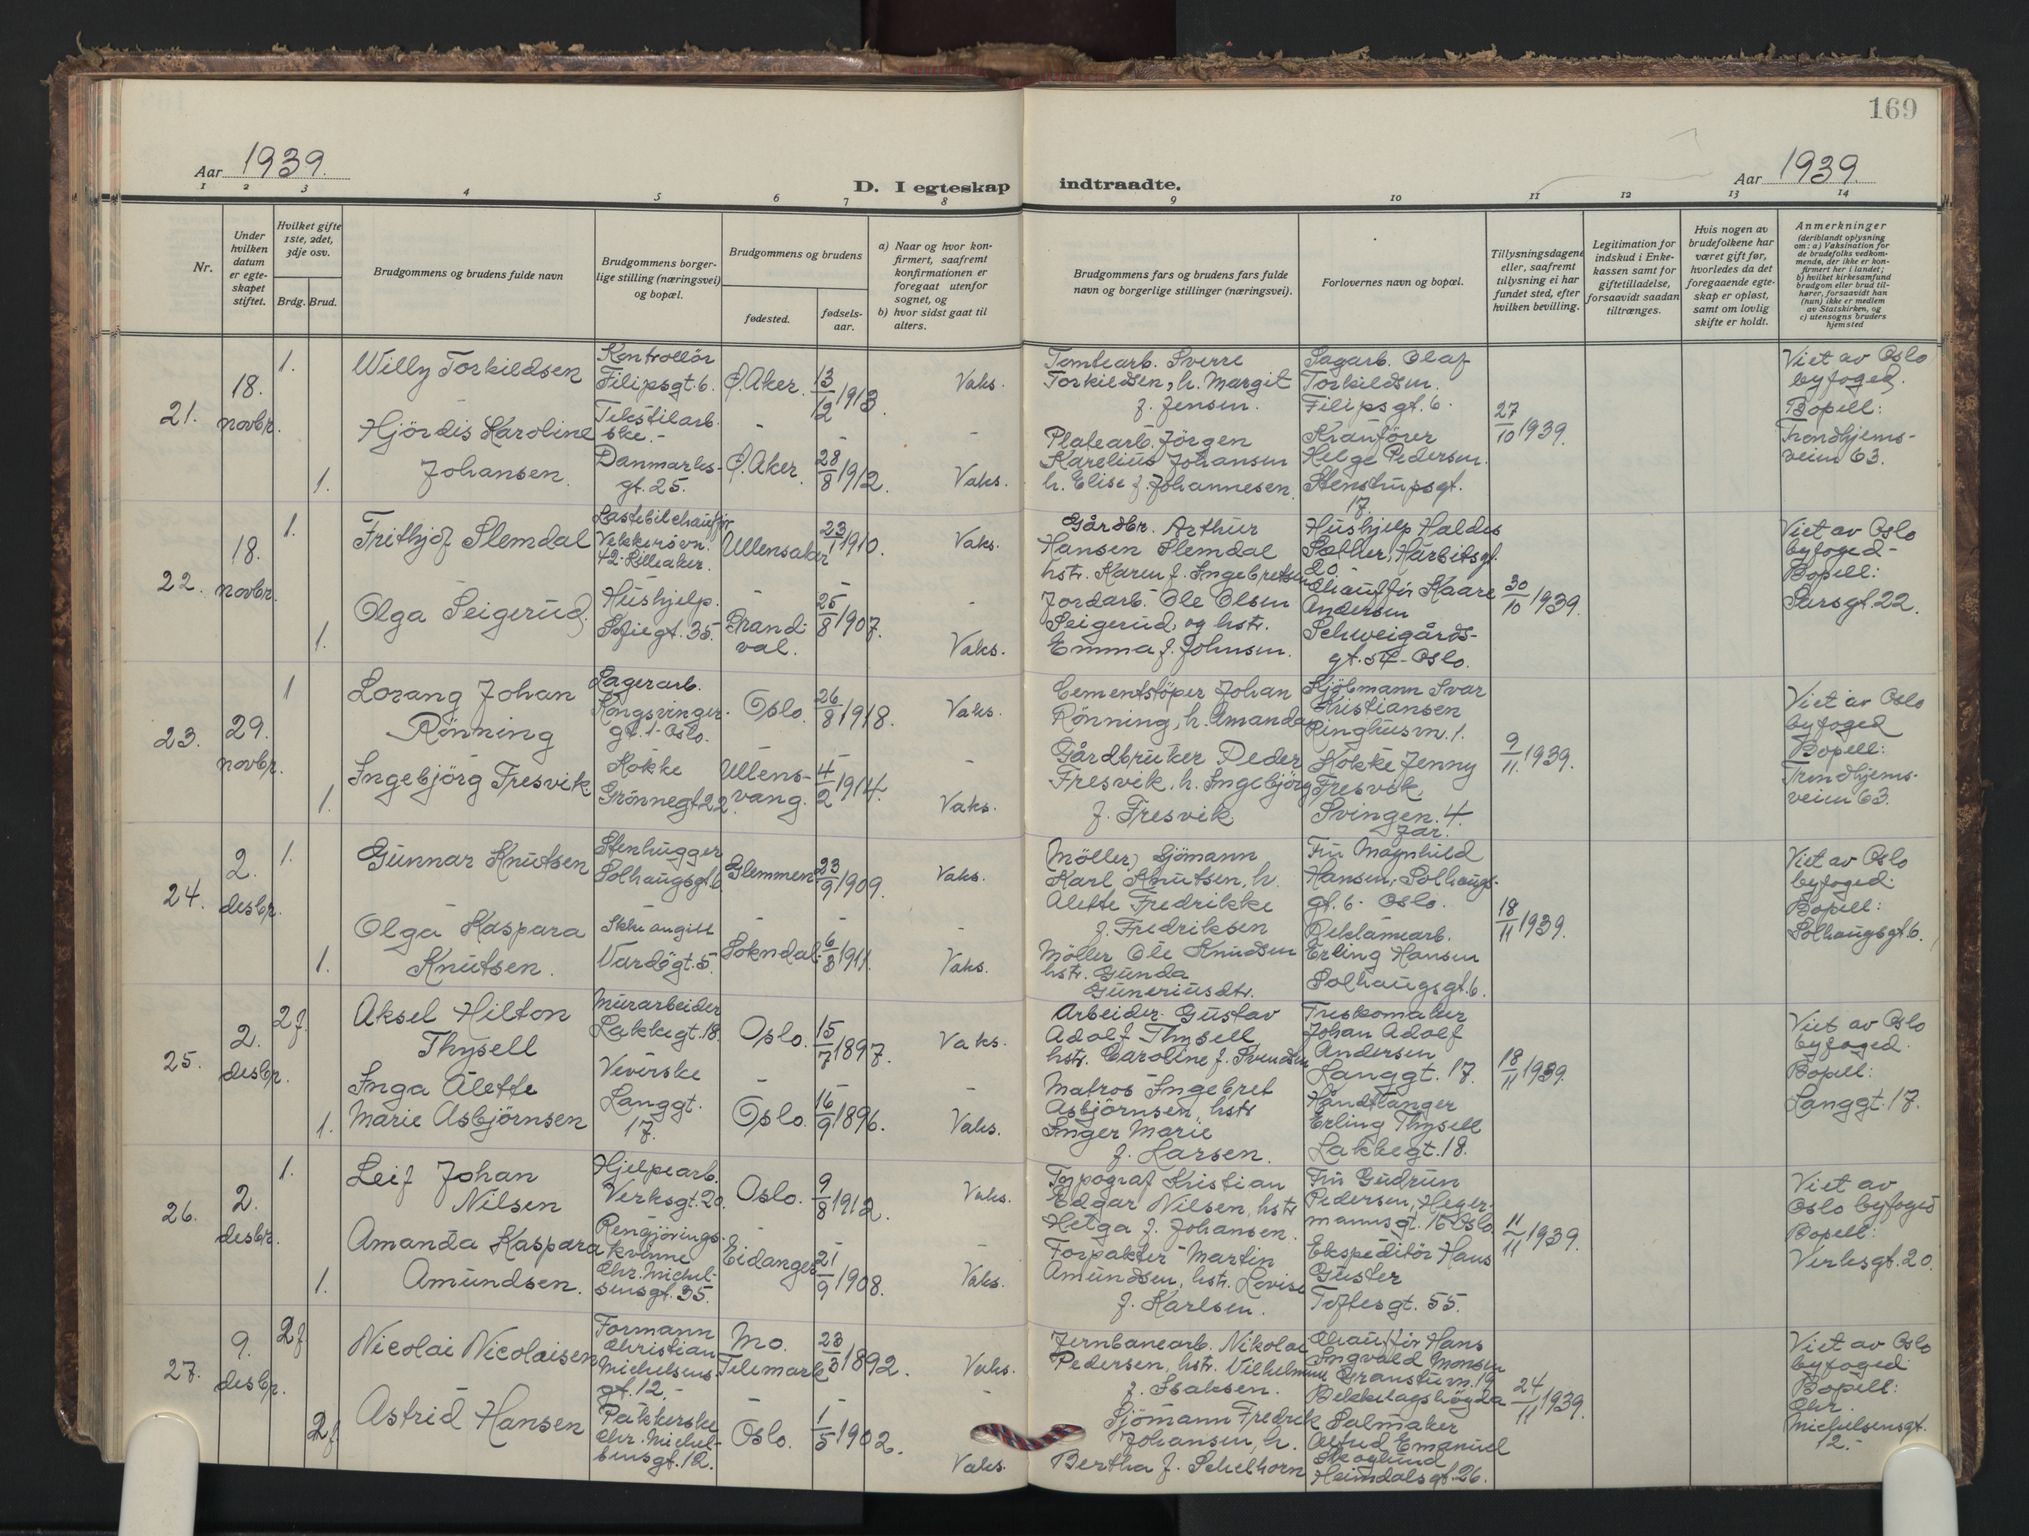 169
Aar 1939.
D. I egteskap indtraadte.
Aar 1939.
1 2 3 4 5 6 7 8 9 10 11 12 13 14
Nr.
Under hvilken datum er egteskapet stiftet.
Hvilket gifte 1ste, 2det, 3dje osv.
Brdg. Brud.
Brudgommens og brudens fulde navn
Brudgommens borgerlige stilling (næringsvei) og bopæl.
Brudgommens og brudens
fødested.
fødselsaar.
a) Naar og hvor konfirmert, saafremt konfirmationen er foregaat utenfor sognet, og
b) hvor sidst gaat til alters.
Brudgommens fars og brudens fars fulde navn og borgerlige stillinger (næringsvei).
Forlovernes navn og bopæl.
Tillysningsdagene eller, saafremt tillysning ei har fundet sted, efter hvilken bevilling.
Legitimation for indskud i Enkekassen samt for giftetilladelse, forsaavidt saadan tiltrænges.
Hvis nogen av brudefolkene har været gift før, hvorledes da det foregaaende egteskap er opløst, samt om lovlig skifte er holdt.
Anmerkninger (deriblandt oplysning om: a) Vaksination for de brudefolks vedkommende, der ikke er konfirmert her i landet; b) hvilket kirkesamfund brudgom eller brud tilhører, forsaavidt han (hun) ikke er medlem av Statskirken, og c) utensogns bruders hjemsted
21.
18. novbr.
1.
Willy Torkildsen
Kontrollör
Filipsgt. 6.
Ö. Aker.
13/12 1913.
Vaks.
Tomtearb. Sverre
Torkildsen, h. Margit
f. Jensen.
Sagarb. Olaf
Torkildsen.
Filipsgt. 6.
27/10 1939.
Viet av Oslo
byfoged.
Bopell:
Trondhjems-
veien 63.
1.
Hjördis Karoline
Johansen.
Tekstilarb.
ske.-
Danmarks-
gt. 25.
Ö. Aker.
28/8 1912.
Vaks.
Platearb. Jörgen
Karelius Johansen
h. Elise f. Johannesen.
Kranförer
Helge Pedersen.
Stenstrupsgt.
17.
22.
18. novbr.
1.
Frithjof Slemdal
Lastebilchaufför
Vekkerövn.
42-Lilleaker.
Ullensaker
23/1 1910.
Vaks.
Gårdbr. Arthur
Hansen Slemdal
hstr. Karen f. Ingebretsen
Hushjelp Haldis
Sæther, Harbitzgt.
20.
30/10 1939.
Viet av Oslo
byfoged-
Bopell:
Sarsgt. 22.
1.
Olga Seigerud.
Hushjelp.
Sofiegt. 35.
Brand-
val.
25/8 1907.
Vaks.
Jordarb. Ole Olsen
Seigerud, og hstr.
Emma f. Johnsen.
Chaufför Kaare
Andersen
Schweigårds-
gt. 54-Oslo.
23.
29. novbr.
1
Lorang Johan
Rönning
Lagerarb.
Kongsvinger-
gt. 1-Oslo.
Oslo.
26/8 1918.
Vaks.
Cementstöper Johan
Rönning, h. Amanda
Kjöbmann Ivar
Kristiansen
Ringhusvn. 1.
9/11 1939.
Viet av Oslo
byfoged
Bopell:
Trondhjems-
veien 63.
1.
Ingebjörg Fresvik
Kokke
Grönnegt. 22.
Ullens-
vang.
4/2 1914.
Vaks.
Gårdbruker Peder
Fresvik, h. Ingebjörg
f. Fresvik
Kokke Jenny
Fresvik,
Svingen. 4.
Jar.
24.
2. desbr.
1.
Gunnar Knutsen
Stenhugger
Solhaugsgt. 6
Glemmen
23/9 1909.
Vaks.
Möller, Sjömann
Karl Knutsen, h.
Alette Fredrikke
f. Fredriksen
Fru Magnhild
Hansen, Solhaugs-
gt. 6- Oslo.
18/11 1939.
Viet av Oslo
byfoged.
Bopell:
Solhaugsgt. 6.
1.
Olga Kaspara
Knutsen.
Ikke angitt
Vardögt. 5.
Sokndal.
6/3 1911.
Vaks.
Möller Ole Knudsen
hstr. Gunda
Guneriusdtr.
Reklamearb.
Erling Hansen
Solhaugsgt. 6.
25.
2. desbr.
2 f.
Aksel Hilton
Thysell
Murarbeider
Lakkegt. 18.
Oslo.
15/7 1897.
Vaks.
Arbeider Gustav
Adolf Thysell
hstr. Caroline f. Svendsen
Treskomaker
Johan Adolf
Andersen
Langgt. 17.
18/11 1939.
Viet av Oslo
byfoged.
Bopell:
Langgt. 17.
1.
Inga Alette
Marie Asbjörnsen
Veverske
Langgt.
17.
Oslo.
16/9 1896.
Vaks.
Matros Ingebret
Asbjörnsen, hstr
Inger Marie
f. Larsen.
Håndtlanger
Erling Thysell
Lakkegt. 18.
26.
2. desbr.
1.
Leif Johan
Nilsen
Hjelpearb.
Verksgt. 20.
Oslo.
9/8 1912.
Vaks.
Typograf Kristian
Edgar Nilsen, hstr
Helga f. Johansen.
Fru Gudrun
Pedersen, Heger-
mannsgt. 15 Oslo
11/11 1939.
Viet av
Oslo byfoged
Bopell:
Verksgt. 20.
1.
Amanda Kaspara
Amundsen.
Rengjörings-
kvinne
Chr. Michel-
sensgt. 35.
Eidanger
21/9 1908.
Vaks.
Forpakter Martin
Amundsen, hstr. Lovise
f. Karlsen.
Ekspeditör Hans
Guster
Toftesgt. 55.
27.
9. desbr.
2 f
Nicolai Nicolaisen
Formann
Christian
Michelsens
gt. 12.-
Mo.
Telemark
23/3 1892.
Vaks.
Jernbanearb. Nikolai
Pedersen, hstr. Vilhelmine
f. Isaksen.
Chaufför Hans
Ingvald Monsen
Granstuvn. 19
Bekkelagshögda
24/11 1939.
Viet av Oslo
byfoged
Bopell:
Chr.
Michelsensgt.
12.-
2 f
Astrid Hansen
Pakkerske
Chr. Michel-
sensgt. 12.
Oslo.
1/5 1902.
Vaks.
Sjömann Fredrik
Johansen, h.
Bertha f. Schelhorn
Salmaker
Alfred Emanuel
Skoglund
Heimdalsgt. 26.